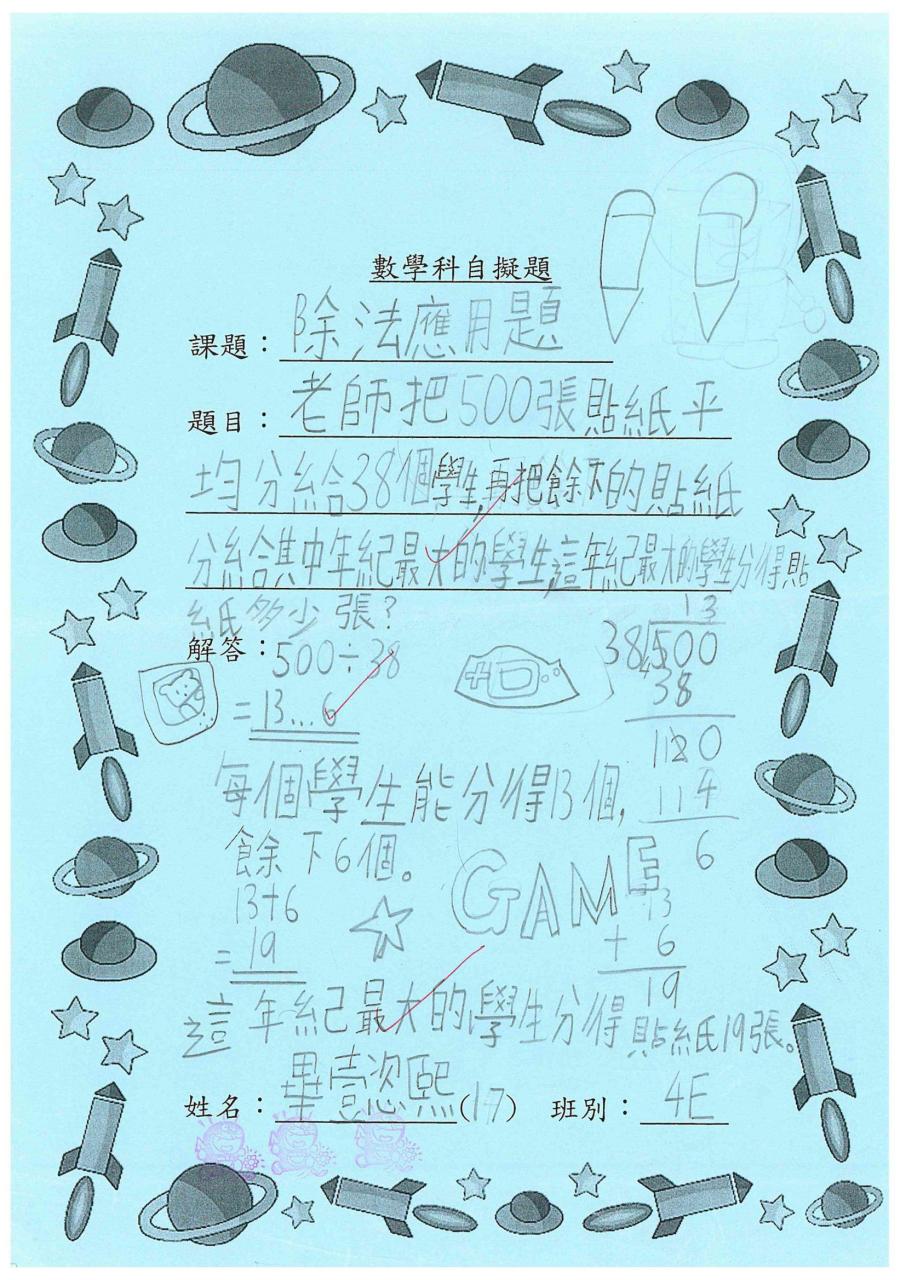 數學科自擬題
課題：除法應用題
題目：老師把500張貼紙平
均分給38個學生,再把餘下的貼紙
分給其中年紀最大的學生,這年紀最大的學生分得貼
紙多少張?
解答：500÷38
=13...6
13
38 500
38
120
114
6
每個學生能分得13個,
餘下6個。
GAME
13+6
=19
13
+ 6
19
這年紀最大的學生分得貼紙19張。
姓名：畢壹恣熙(17) 班別：4E